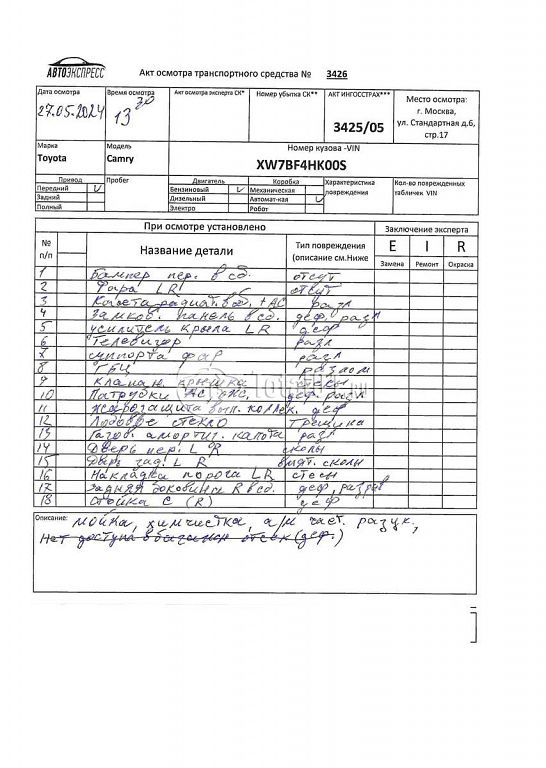 АВТОЭКСПРЕСС
Акт осмотра транспортного средства № 3426
Дата осмотра
27.05.2024
Время осмотра
13 30
Акт осмотра эксперта СК*
Номер убытка СК**
АКТ ИНГОССТРАХ***
3425/05
Место осмотра:
г. Москва,
ул. Стандартная д.6,
стр.17
Марка
Toyota
Модель
Camry
Номер кузова -VIN
XW7BF4HK00S
Привод
Передний V
Задний
Полный
Пробег
Двигатель
Бензиновый V
Дизельный
Электро
Коробка
Механическая
Автомат-кая V
Робот
Характеристика
повреждения
Кол-во поврежденных
табличек VIN
При осмотре установлено
Заключение эксперта
№
п/п
Название детали
Тип повреждения
(описание см.Ниже
E I R
Замена Ремонт Окраска
1 Бампер пер. в сб. отсут
2 Фара LR отсут
3 Кассета радиат. в сб. + АС разл
4 Замков. панель в сб. деф. разл
5 усилитель крыла LR деф
6 Телевизор разл
7 суппорта фар разл
8 ГБЦ разлом
9 Клапан. крышка
10 Патрубки АС, деф. разл
11 Жарозащита вып. коллек. деф
12 Лобовое стекло трещина
13 Газов. амортиз. капота разл
14 Дверь пер. L R сколы
15 Дверь зад. L R вмят. сколы
16 Накладка порога LR
17 Задняя боковина R в сб. деф, разрыв
18 Стойка C (R) деф
Описание: мойка, химчистка, а/м част. разук,
Нет доступа в отсек (деф.)